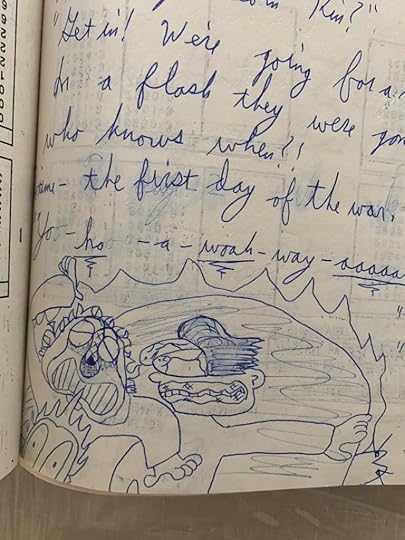 Kin?"
"Get in! We're going for a
In a flash they were gon
who knows when?!
time - the first day of the war.
"Yoo - hoo - - a - woah - way - aaaaa